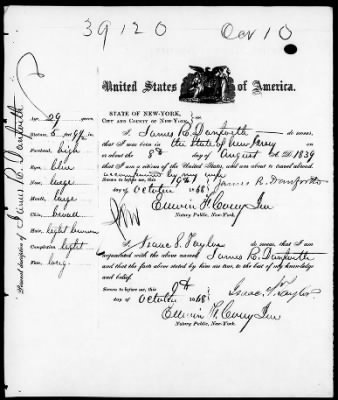 39120 Oct 10
United States of America.
STATE OF NEW-YORK,
CITY AND COUNTY OF NEW-YORK,
I, James R. Danforth do swear,
that I was born in the State of New Jersey
or about the 8th day of August A.D. 1839
that I am a citizen of the United States, and am about to travel abroad,
accompanied by my wife
Sworn to before me, this
day of October 1868
James R. Danforth
Edwin F. Corey Jun
Notary Public, New-York.
I, Isaac S. Taylor do swear, that I am
acquainted with the above named James R. Danforth
and that the facts stated by him are true, to the best of my knowledge
and belief.
Sworn to before me, this 9th
day of October 1868
Isaac S. Taylor
Edwin F. Corey Jun
Notary Public, New-York.
Personal description of James R. Danforth
Age, 29 years
Stature, 5
Forehead, high
Eyes, blue
Nose, large
Mouth, large
Chin,
Hair, light brown
Complexion light
Face, long